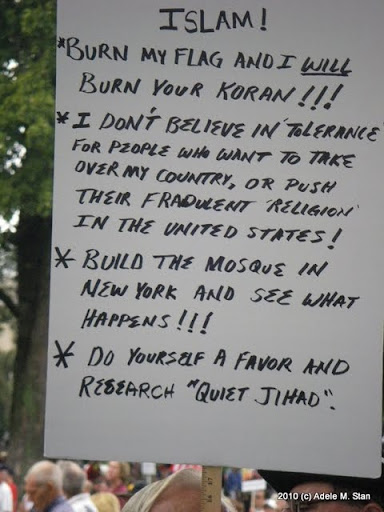 ISLAM!
*BURN MY FLAG AND I WILL
BURN YOUR KORAN!!!
* I DON'T BELIEVE IN 'TOLERANCE
FOR PEOPLE WHO WANT TO TAKE
OVER MY COUNTRY, OR PUSH
THEIR FRADULENT 'RELIGION'
IN THE UNITED STATES!
* BUILD THE MOSQUE IN
NEW YORK AND SEE WHAT
HAPPENS!!!
* DO YOURSELF A FAVOR AND
RESEARCH "QUIET JIHAD".
2010 (c) Adele M. Stan